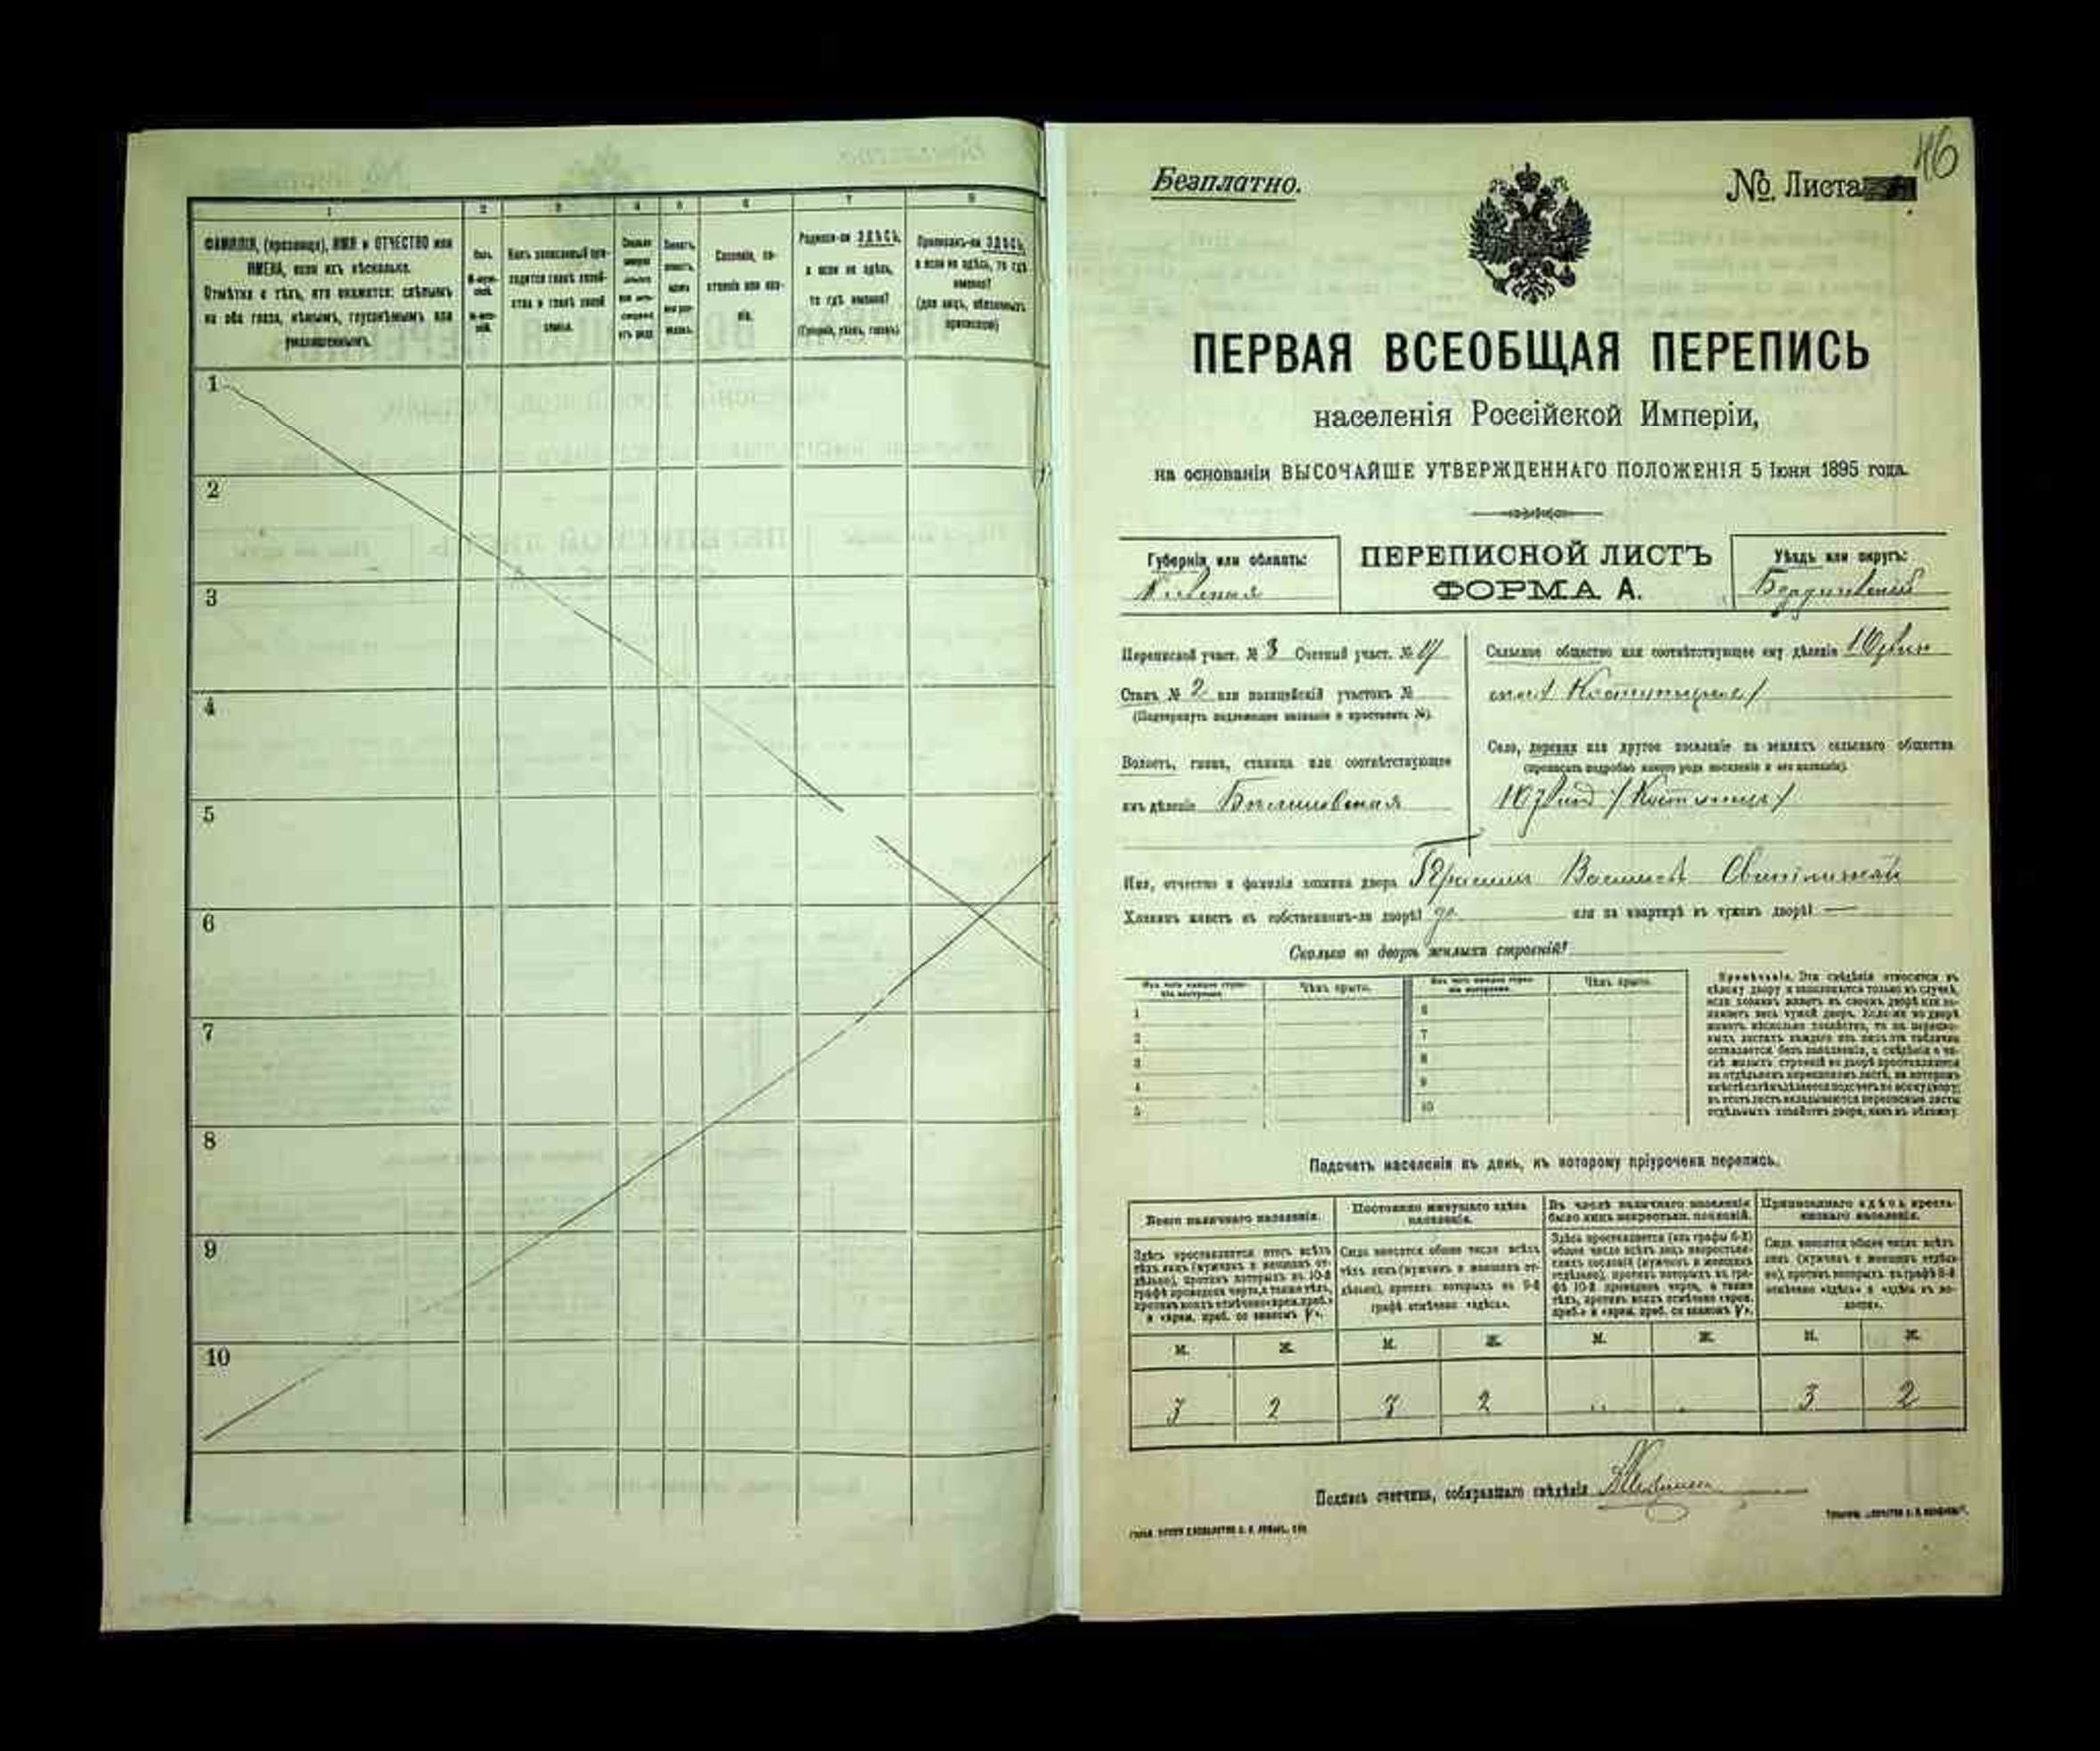 1 2 3 4 5 6 7 8
ФАМИЛІЯ, (прозвище), ИМЯ и ОТЧЕСТВО или
ИМЕНА, если ихъ нѣсколько.
Отмѣтка о тѣхъ, кто окажется: слѣпымъ
на оба глаза, нѣмымъ, глухонѣмымъ или
умалишеннымъ.
Полъ.
М-муж-
ской.
Ж-жен-
скій.
Какъ записанный при-
ходится главѣ хозяй-
ства и главѣ своей
семьи.
Сословіе, со-
стояніе или зва-
ніе.
Родился-ли ЗДѢСЬ,
а если не здѣсь,
то гдѣ именно?
(Губернія, уѣздъ, городъ).
Приписанъ-ли ЗДѢСЬ,
а если не здѣсь, то гдѣ
именно?
(для лицъ, обязанныхъ
припискою)
1
2
3
4
5
6
7
8
9
10
46
Безплатно.
№ Листа
ПЕРВАЯ ВСЕОБЩАЯ ПЕРЕПИСЬ
населенія Россійской Имперіи,
на основаніи ВЫСОЧАЙШЕ УТВЕРЖДЕННАГО ПОЛОЖЕНІЯ 5 Іюня 1895 года.
Губернія или область:
Кіевская
ПЕРЕПИСНОЙ ЛИСТЪ
ФОРМА А.
Уѣздъ или округъ:
Бердичевскій
Переписной участ. № 3 Счетный участ. №
Станъ № 2 или полицейскій участокъ №
(Подчеркнуть надлежащее названіе и проставить №).
Волость, гмина, станица или соотвѣтствующее
имъ дѣленіе
Сельское общество или соотвѣтствующее ему дѣленіе
Село, деревня или другое поселеніе на земляхъ сельскаго общества
(прописать подробно какого рода поселеніе и его названіе).
Имя, отчество и фамилія хозяина двора
Хозяинъ живетъ въ собственномъ-ли дворѣ? да или на квартирѣ въ чужомъ дворѣ? —
Сколько во дворѣ жилыхъ строеній?
Изъ чего каждое строе-
ніе построено. Чѣмъ крыто. Изъ чего каждое строе-
ніе построено. Чѣмъ крыто.
1 6
2 7
3 8
4 9
5 10
Примѣчаніе. Эти свѣдѣнія относятся къ
цѣлому двору и заполняются только въ случаѣ,
если хозяинъ живетъ въ своемъ дворѣ или за-
нимаетъ весь чужой дворъ. Если-же во дворѣ
живетъ нѣсколько хозяйствъ, то на перепис-
ныхъ листахъ каждаго изъ нихъ эта табличка
оставляется безъ заполненія, а свѣдѣнія о чи-
слѣ жилыхъ строеній во дворѣ проставляются
на отдѣльномъ переписномъ листѣ, на которомъ
вмѣстѣ съ тѣмъ дѣлается подсчетъ по всему двору;
въ этотъ листъ вкладываются переписные листы
отдѣльныхъ хозяйствъ двора, какъ въ обложку.
Подсчетъ населенія въ день, къ которому пріурочена перепись.
Всего наличнаго населенія.
Постоянно живущаго здѣсь
населенія.
Въ числѣ наличнаго населенія
было лицъ некрестьян. сословій.
Приписаннаго здѣсь кресть-
янскаго населенія.
Здѣсь проставляется итогъ всѣхъ
тѣхъ лицъ (мужчинъ и женщинъ от-
дѣльно), противъ которыхъ въ 10-й
графѣ проведена черта, а также тѣхъ,
противъ коихъ отмѣчено «врем. преб.»
и «врем. преб. со знакомъ V».
Сюда вносится общее число всѣхъ
тѣхъ лицъ (мужчинъ и женщинъ от-
дѣльно), противъ которыхъ въ 9-й
графѣ отмѣчено «здѣсь».
Здѣсь проставляется (изъ графы 6-й)
общее число всѣхъ лицъ некрестьян-
скихъ сословій (мужчинъ и женщинъ
отдѣльно), противъ которыхъ въ гра-
фѣ 10-й проведена черта, а также
тѣхъ, противъ коихъ отмѣчено «врем.
преб.» и «врем. преб. со знакомъ V».
Сюда вносится общее число всѣхъ
лицъ (мужчинъ и женщинъ отдѣль-
но), противъ которыхъ въ графѣ 8-й
отмѣчено «здѣсь» и «здѣсь въ во-
лости».
М. Ж. М. Ж. М. Ж. М. Ж.
3 2 3 2 3 2
Подпись счетчика, собиравшаго свѣдѣнія